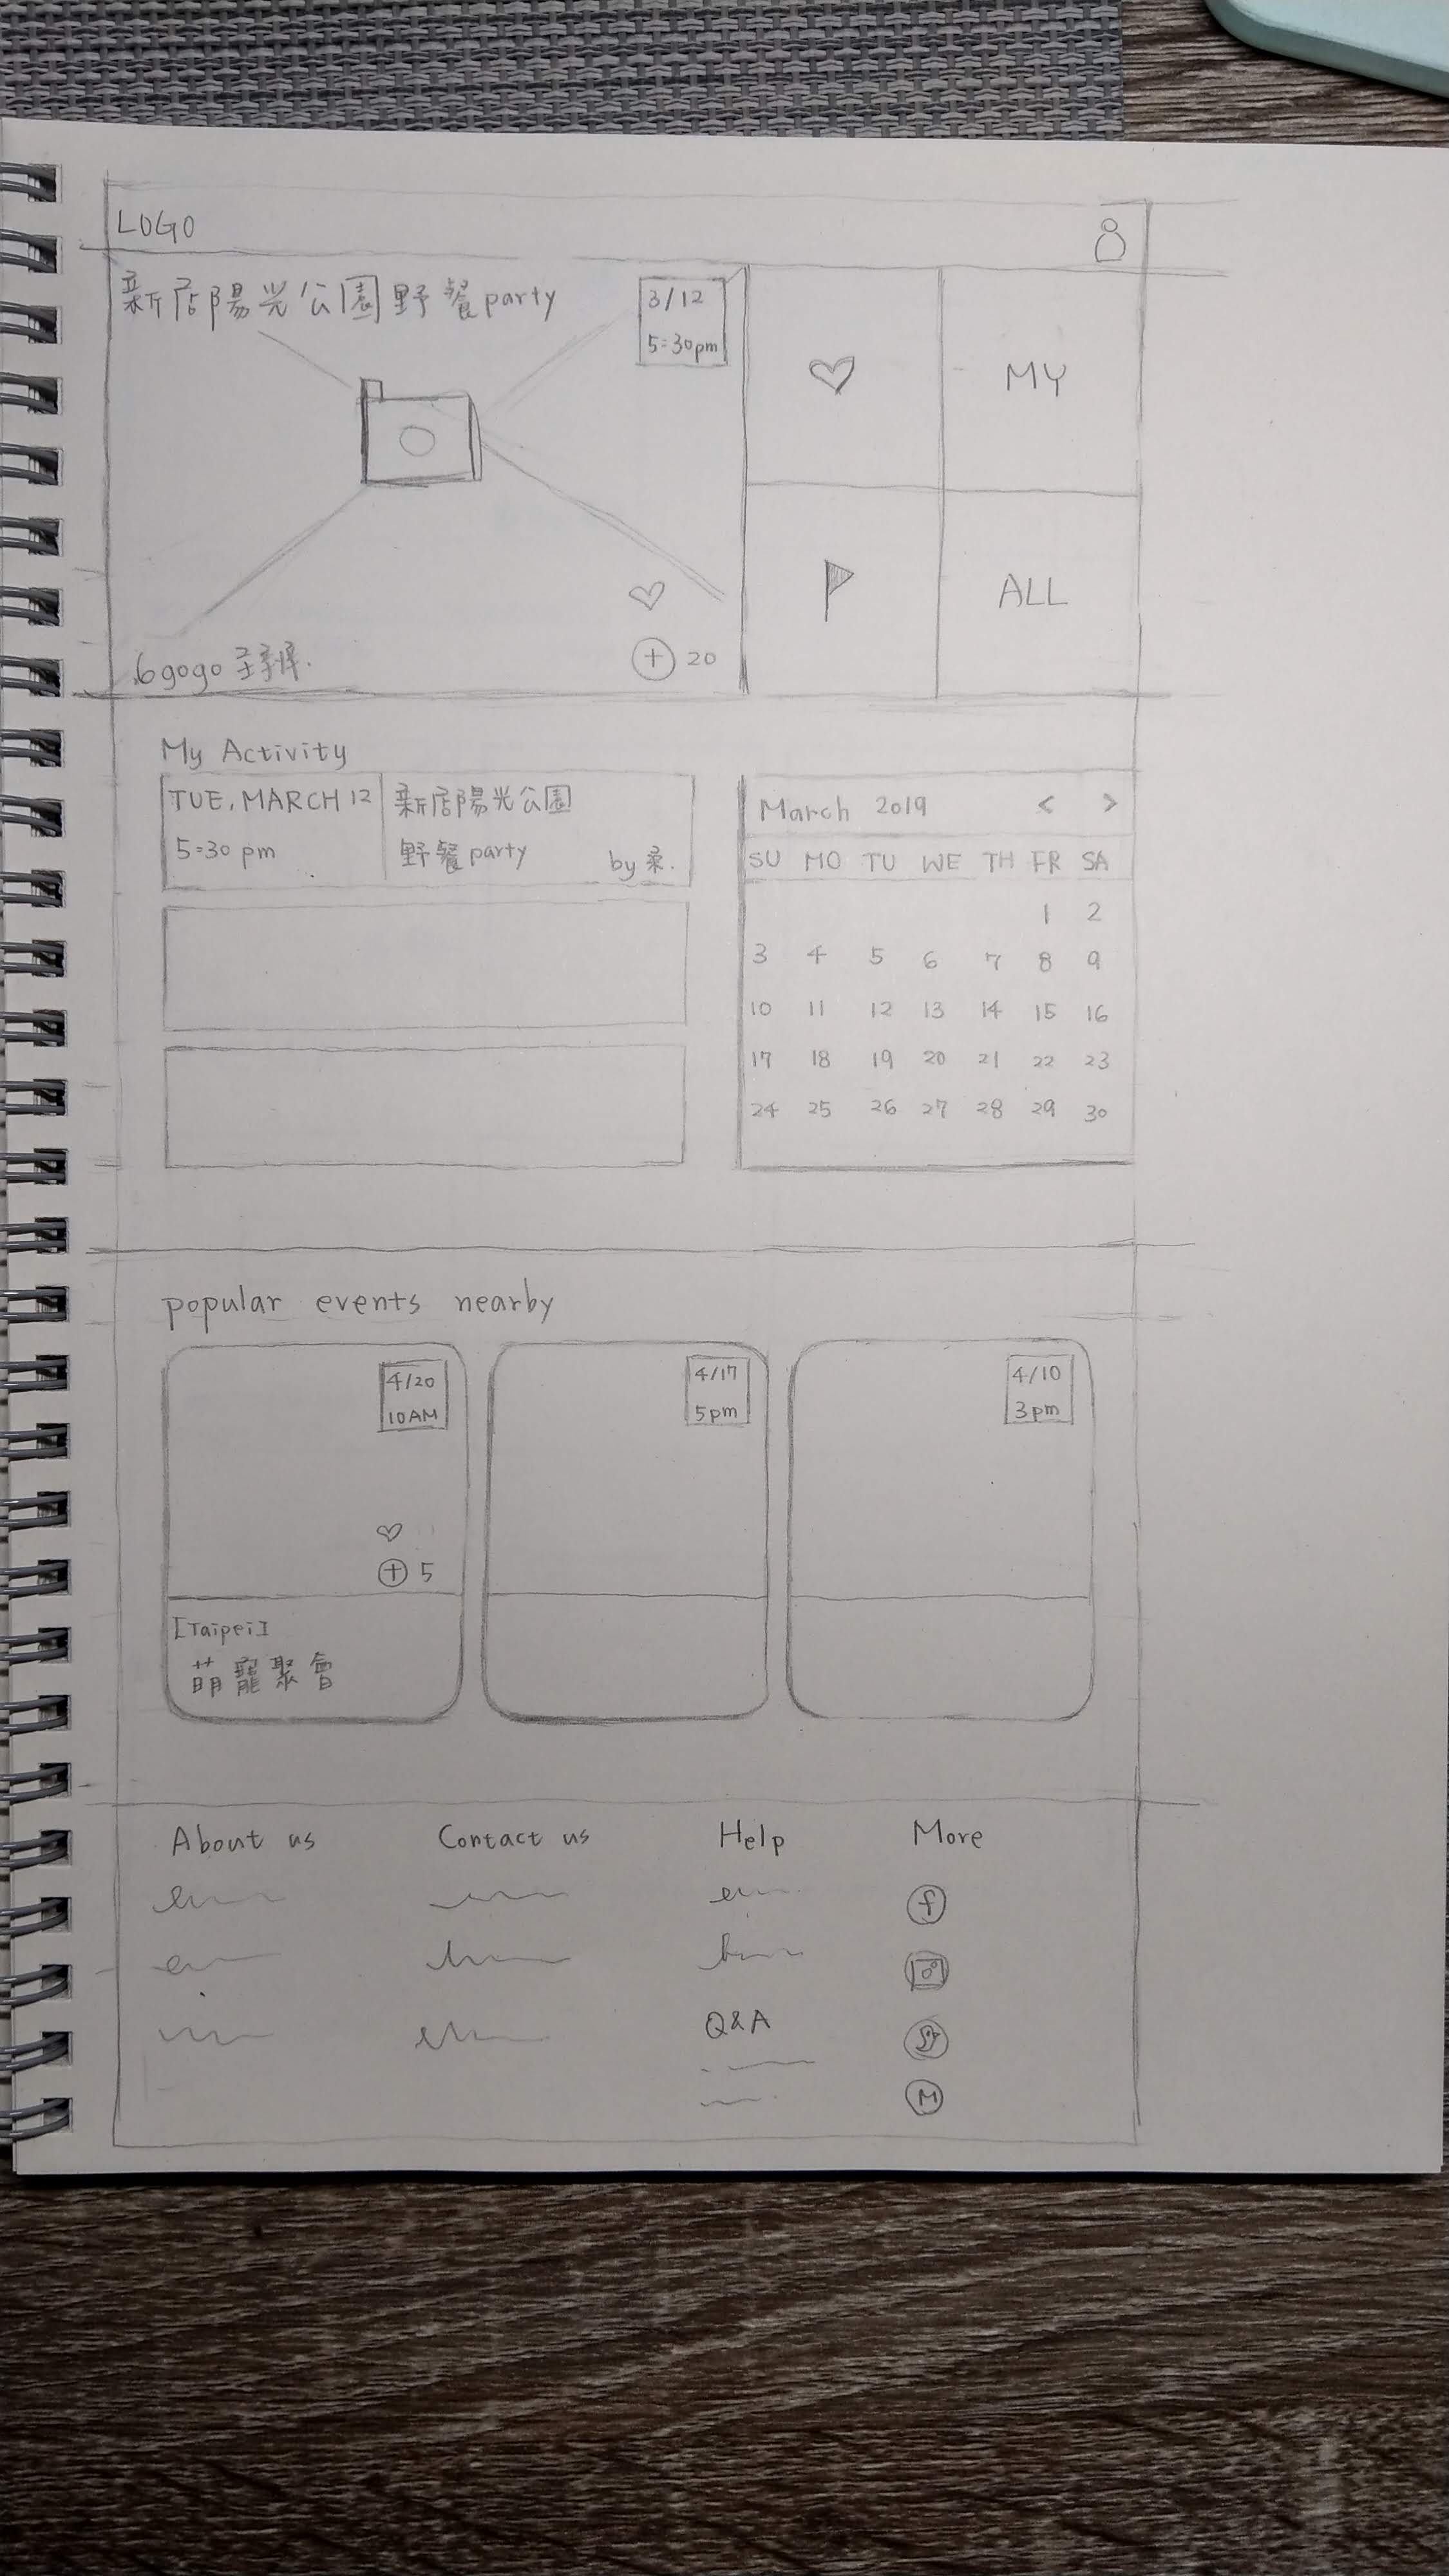 LOGO
新店陽光公園野餐party
3/12
5:30pm
MY
ALL
6gogo 主辦.
20
My Activity
TUE, MARCH 12
5:30 pm
新店陽光公園
野餐party
by 柔.
March 2019 < >
SU MO TU WE TH FR SA
1 2
3 4 5 6 7 8 9
10 11 12 13 14 15 16
17 18 19 20 21 22 23
24 25 26 27 28 29 30
popular events nearby
4/20
10AM
5
[Taipei]
萌寵聚會
4/17
5pm
4/10
3pm
About us
Contact us
Help
Q&A
More
f
M